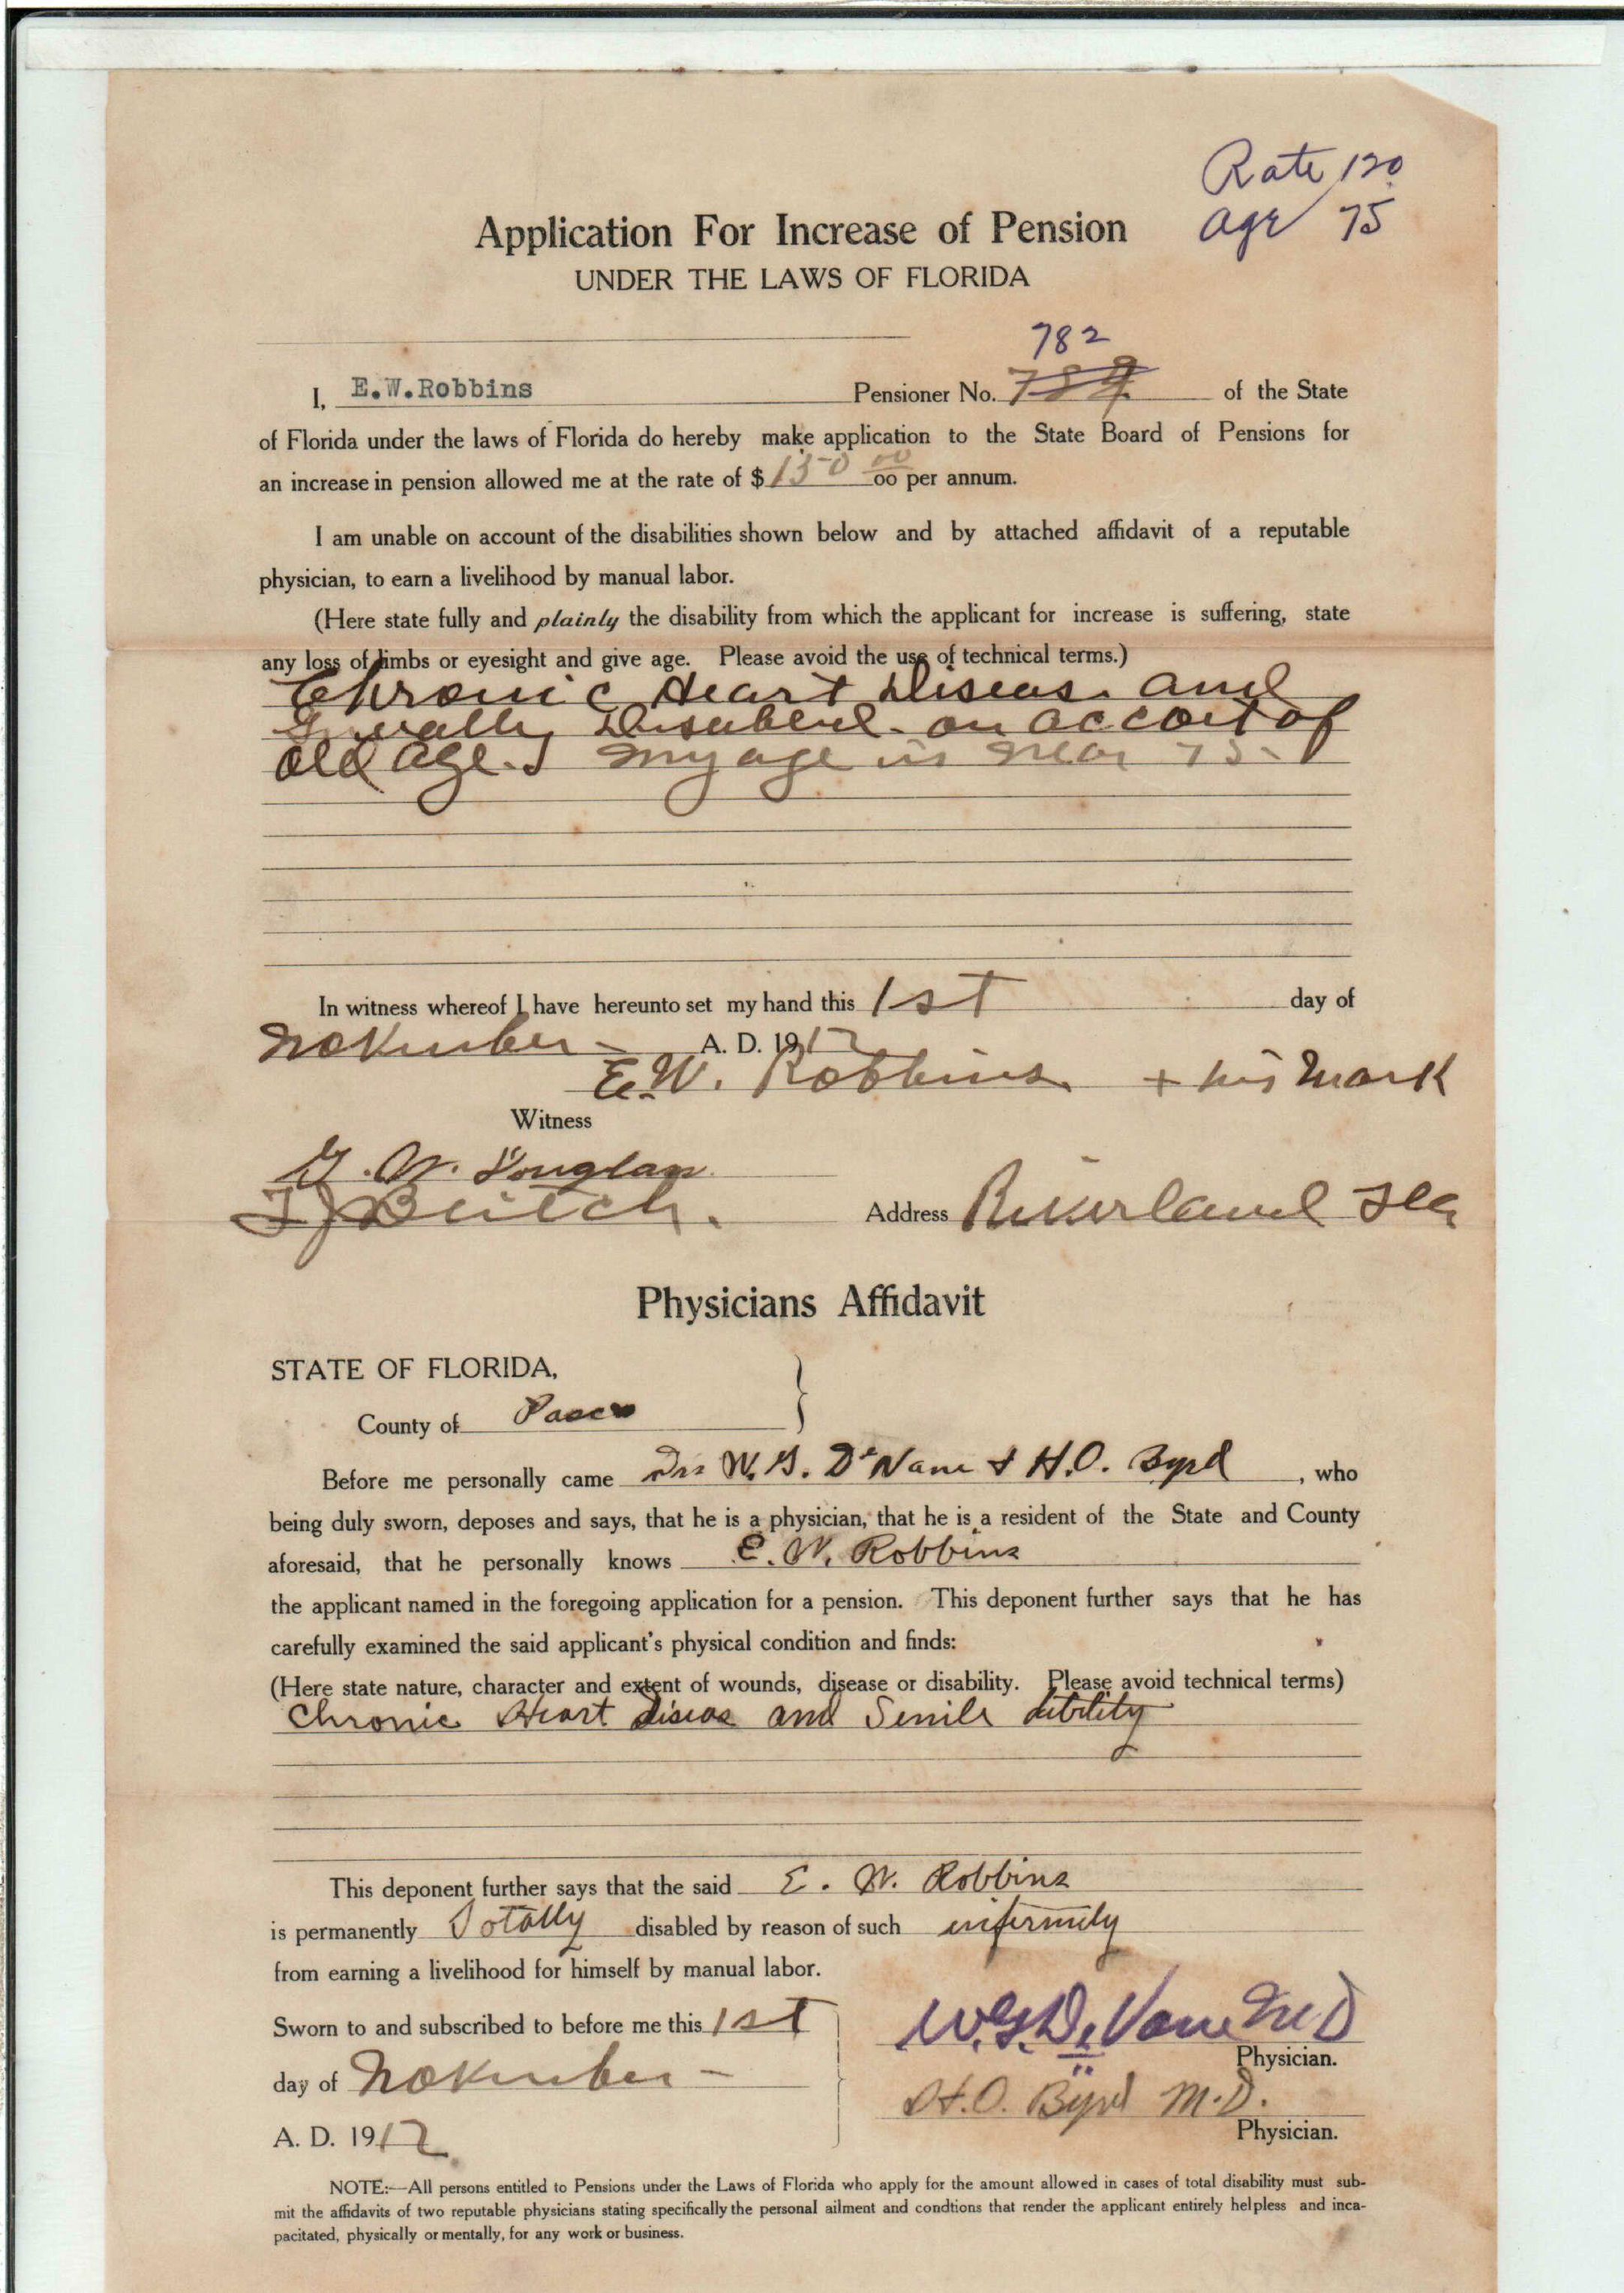 Rate 120
age 75
Application For Increase of Pension
UNDER THE LAWS OF FLORIDA
782
I, E.W.Robbins Pensioner No. 789 of the State
of Florida under the laws of Florida do hereby make application to the State Board of Pensions for
an increase in pension allowed me at the rate of $ 150 00 00 per annum.
I am unable on account of the disabilities shown below and by attached affidavit of a reputable
physician, to earn a livelihood by manual labor.
(Here state fully and plainly the disability from which the applicant for increase is suffering, state
any loss of limbs or eyesight and give age. Please avoid the use of technical terms.)
Chronic Heart Diseas. and
on accont of
old age. my age is near 75.
In witness whereof I have hereunto set my hand this 1st day of
November A. D. 1917
E.W. Robbins + his mark
Witness
G. W. Douglas
Address Riverland Fla
Physicians Affidavit
STATE OF FLORIDA,
County of Pasco
Before me personally came Drs W. G. DeVane & H.O. Byrd, who
being duly sworn, deposes and says, that he is a physician, that he is a resident of the State and County
aforesaid, that he personally knows E. W. Robbins
the applicant named in the foregoing application for a pension. This deponent further says that he has
carefully examined the said applicant's physical condition and finds:
(Here state nature, character and extent of wounds, disease or disability. Please avoid technical terms)
Chronic Heart diseas and Senile debility
This deponent further says that the said E. W. Robbins
is permanently Totally disabled by reason of such infirmity
from earning a livelihood for himself by manual labor.
Sworn to and subscribed to before me this 1st
day of November
A. D. 1917
W.G. DeVane M D
Physician.
H.O. Byrd M.D.
Physician.
NOTE:—All persons entitled to Pensions under the Laws of Florida who apply for the amount allowed in cases of total disability must sub-
mit the affidavits of two reputable physicians stating specifically the personal ailment and condtions that render the applicant entirely helpless and inca-
pacitated, physically or mentally, for any work or business.